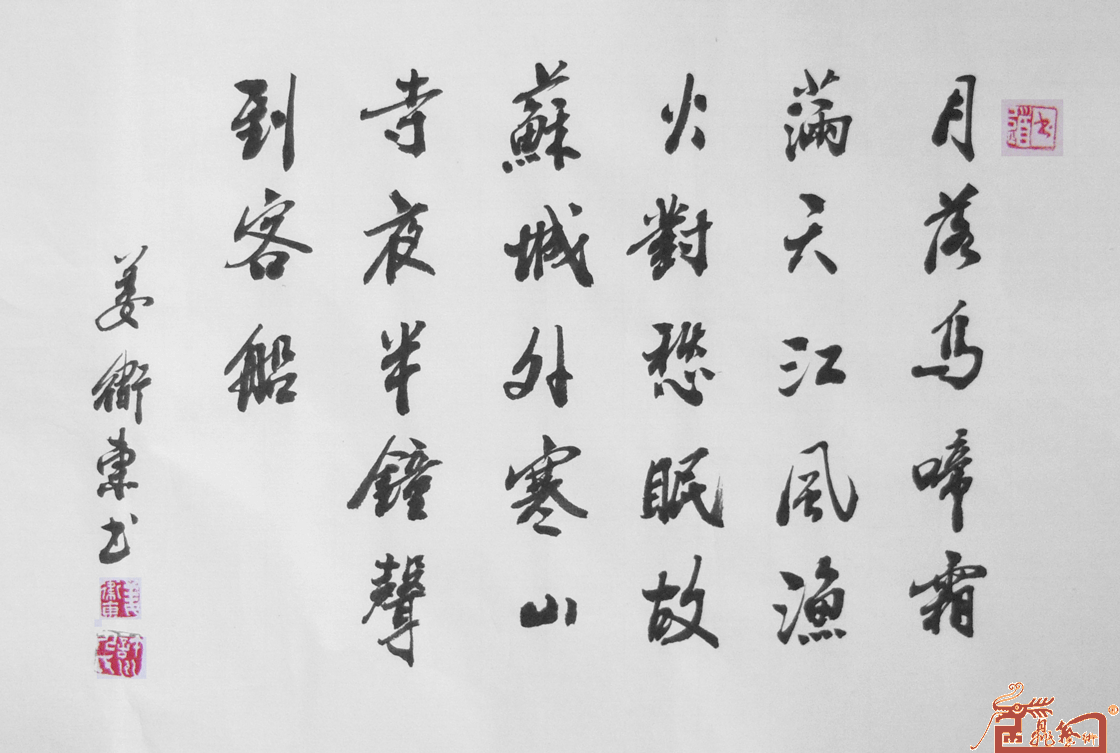 月落烏啼霜
滿天江風漁
火對愁眠故
蘇城外寒山
寺夜半鐘聲
到客船
姜衛東书